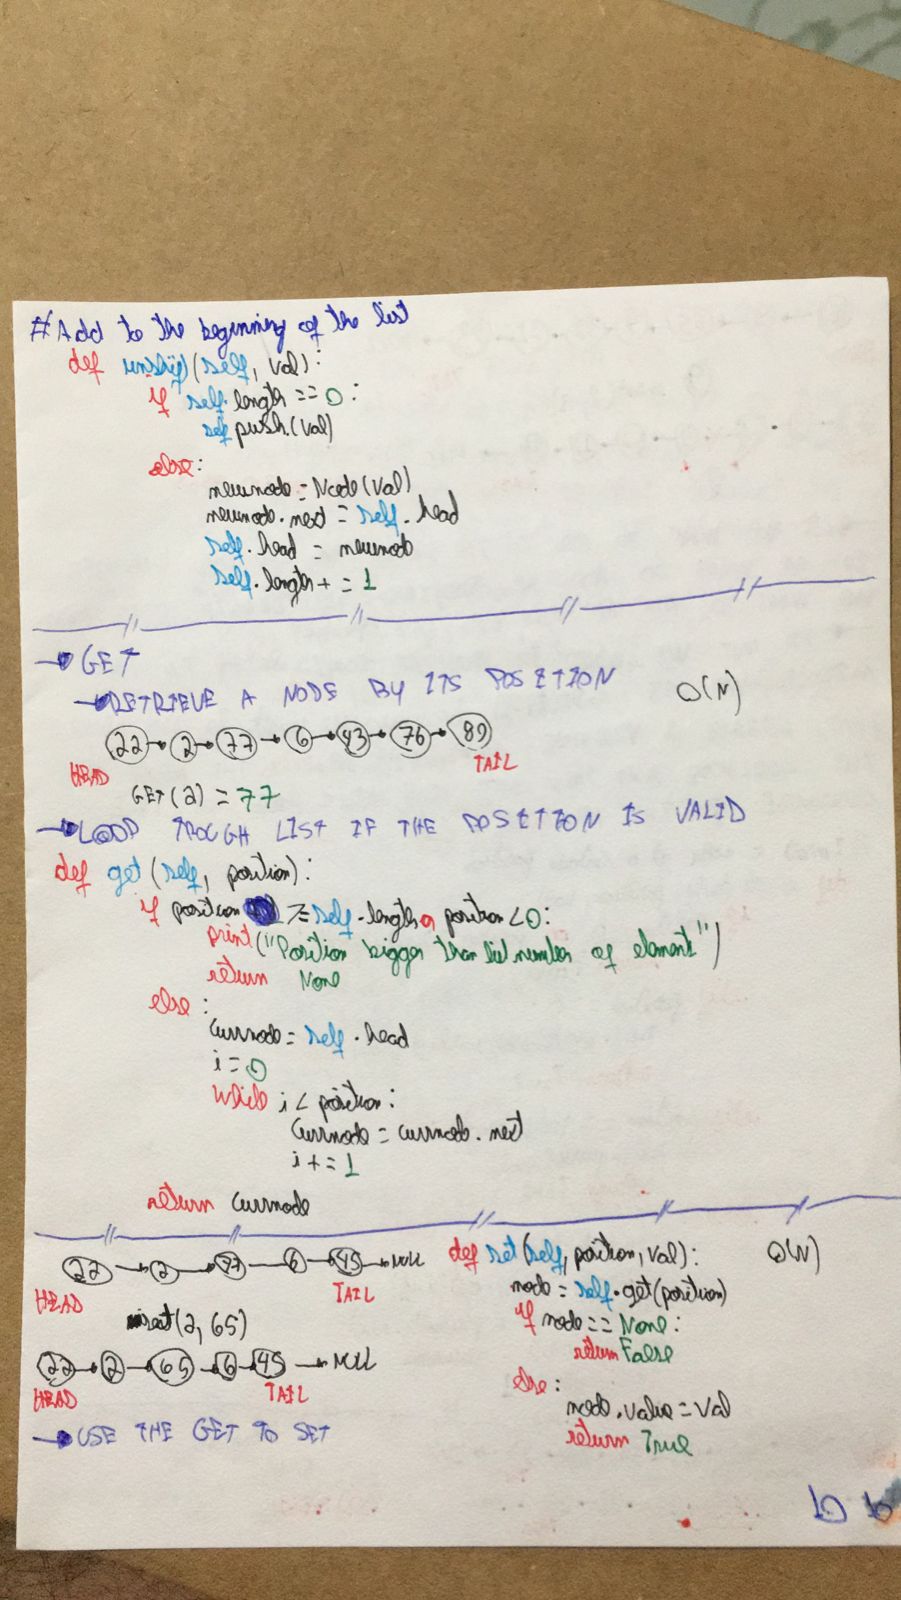 # Add to the beginning of the list
def unshift(self, val):
if self.length == 0:
self push.(val)
else:
newnode = Node(val)
newnode.next = self.head
self.head = newnode
self.length + = 1
→ GET
→ RETRIEVE A NODE BY ITS POSITION O(N)
22 → 2 → 77 → 6 → 43 → 76 → 89
HEAD TAIL
GET(2) = 77
→ LOOP TROUGH LIST IF THE POSITION IS VALID
def get(self, position):
if position >= self.length or position < 0:
print("Position bigger than list number of element")
return None
else:
currnode = self.head
i = 0
while i < position:
currnode = currnode.next
i + = 1
return currnode
22 → 2 → 77 → 6 → 45 → NULL
HEAD TAIL
(2, 65)
22 → 2 → 65 → 6 → 45 → NULL
HEAD TAIL
→ USE THE GET TO SET
def set(self, position, val): O(N)
node = self.get(position)
if node == None:
return False
else:
node.value = val
return True